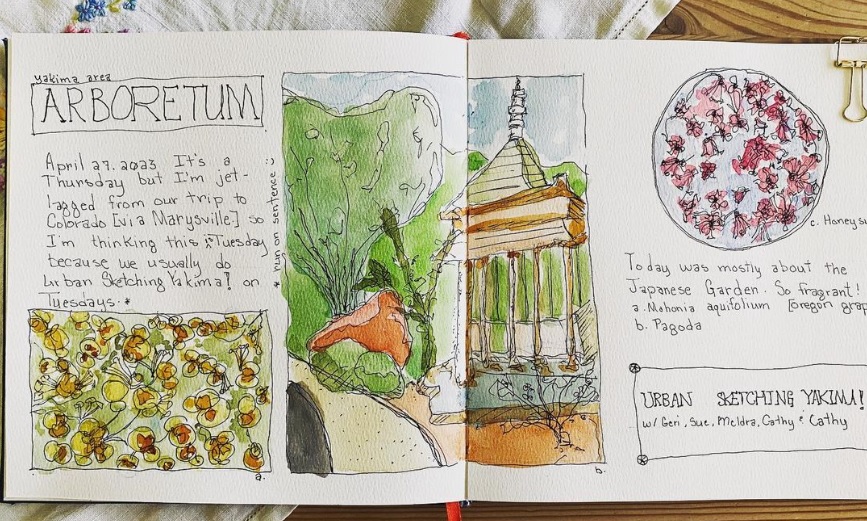 yakima area
ARBORETUM
April 27. 2023 It's a
Thursday but I'm jet-
lagged from our trip to
Colorado [via Marysville] so
I'm thinking this is Tuesday
because we usually do
Urban Sketching Yakima! on
Tuesdays.*
* run on sentence :)
a.
b.
c. Honeysu
Today was mostly about the
Japanese Garden. So fragrant!
a. Mohonia aquifolium [oregon grap
b. Pagoda
URBAN SKETCHING YAKIMA!
w/ Geri, Sue, Meldra, Cathy & Cathy